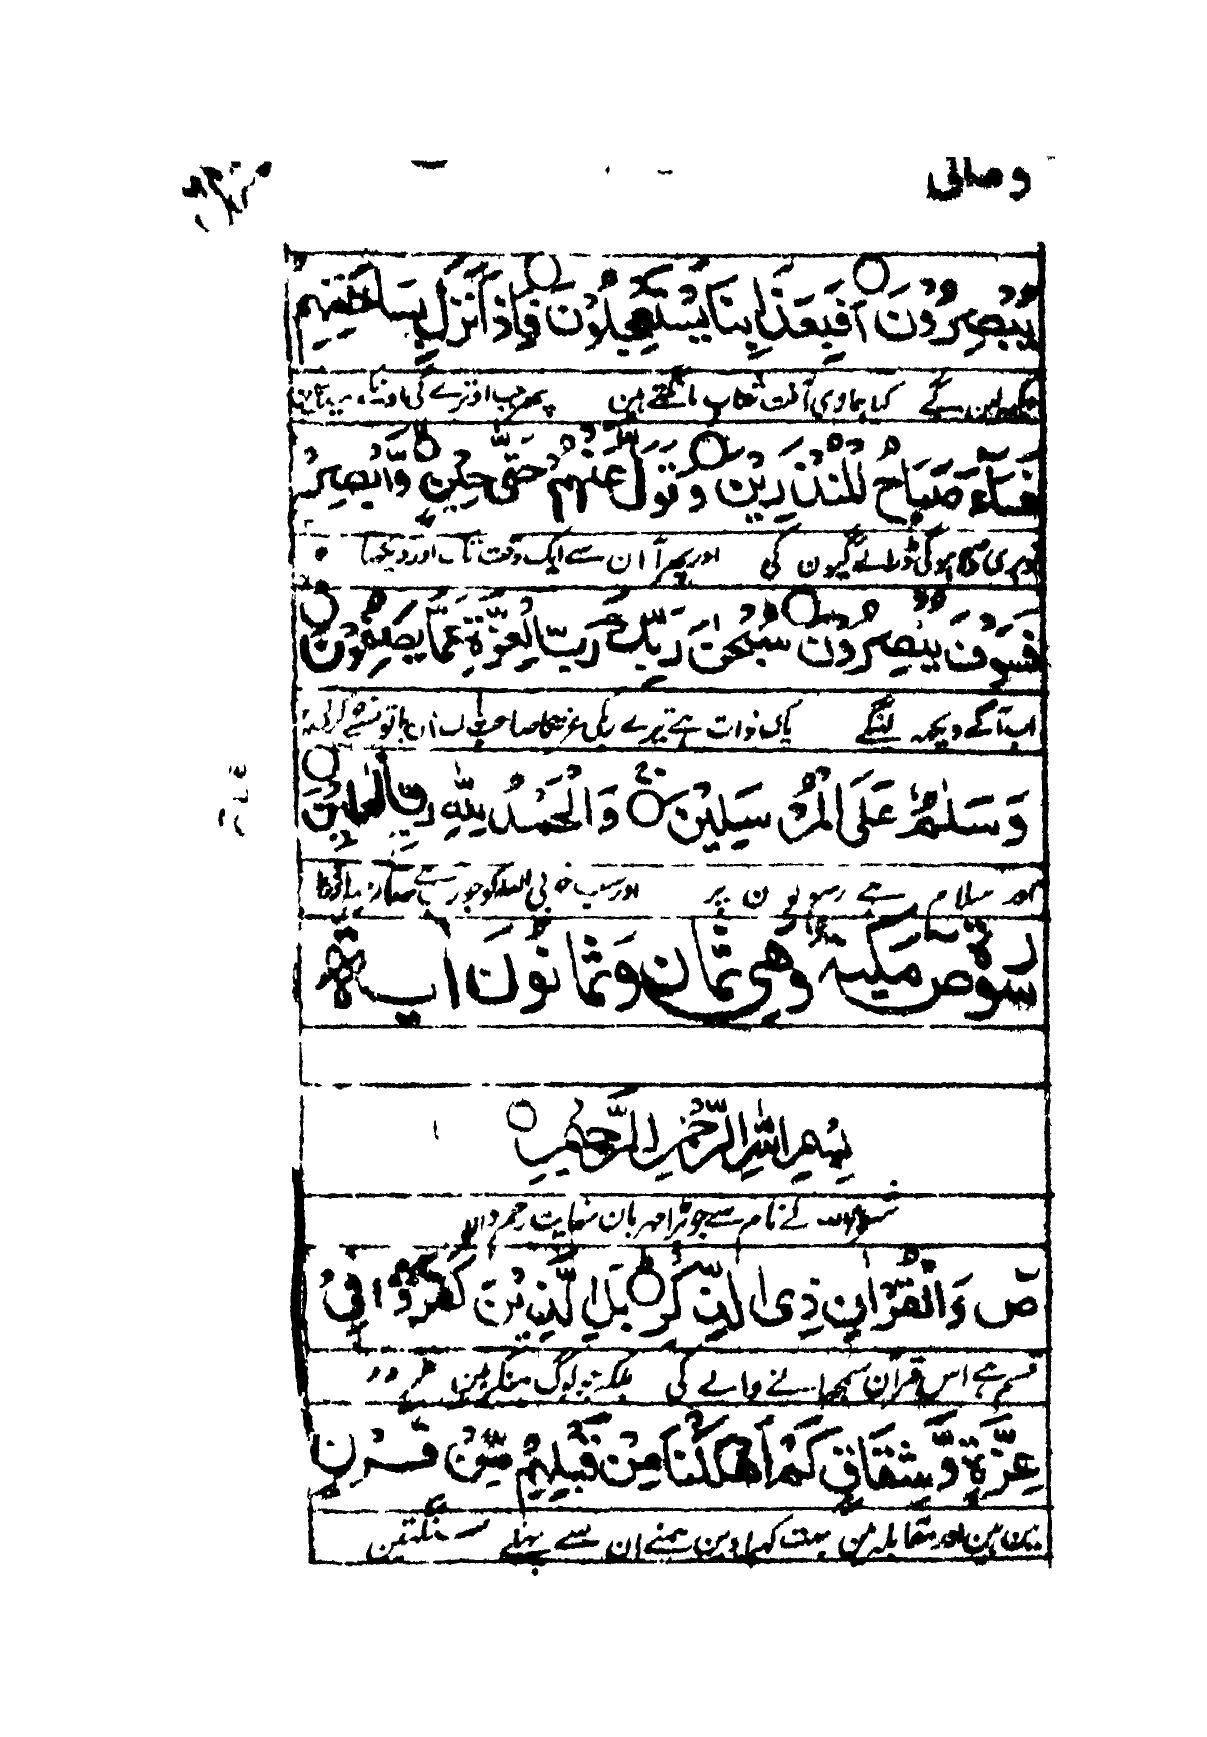 ومالی
يُبْصِرُوْنَ ○ اَفَبِعَذَابِنَا يَسْتَعْجِلُوْنَ ○ فَاِذَا نَزَلَ بِسَاحَتِهِمْ
دیکھ لین گے کیا ہماری آفت شتاب مانگتے ہین پھر جب اوترے گی اونکے میدان
فَسَآءَ صَبَاحُ الْمُنْذَرِيْنَ ○ وَتَوَلَّ عَنْهُمْ حَتّٰى حِيْنٍ ○ وَّاَبْصِرْ
بری صبح ہوگی ڈرائے گیون کی اور پھر آ ان سے ایک وقت تک اور دیکھتا
فَسَوْفَ يُبْصِرُوْنَ ○ سُبْحٰنَ رَبِّكَ رَبِّ الْعِزَّةِ عَمَّا يَصِفُوْنَ ○
اب آگے دیکھ لینگے پاک ذات ہے تیرے رب کی عزت کا صاحب ان باتونسے
وَسَلٰمٌ عَلَى الْمُرْسَلِيْنَ ○ وَالْحَمْدُ لِلّٰهِ رَبِّ الْعٰلَمِيْنَ ○
اور سلام ہے رسولون پر اور سب خوبی اللہ کو جو رب ہے سارے
سُوْرَةُ صٓ مَكِّيَّةٌ وَّهِيَ ثَمَانٍ وَّثَمَانُوْنَ اٰيَةً
بِسْمِ اللّٰهِ الرَّحْمٰنِ الرَّحِيْمِ ○
شروع اللہ کے نام سے جو بڑا مہربان نہایت رحم والا
صٓ وَالْقُرْاٰنِ ذِى الذِّكْرِ ○ بَلِ الَّذِيْنَ كَفَرُوْا فِيْ
قسم ہے اس قرآن سمجھانے والے کی بلکہ جو لوگ منکر ہین
عِزَّةٍ وَّشِقَاقٍ كَمْ اَهْلَكْنَا مِنْ قَبْلِهِمْ مِّنْ قَرْنٍ
مین ہین اور مقابلہ مین بہت کھپا دین ہمنے ان سے پہلے سنگتین